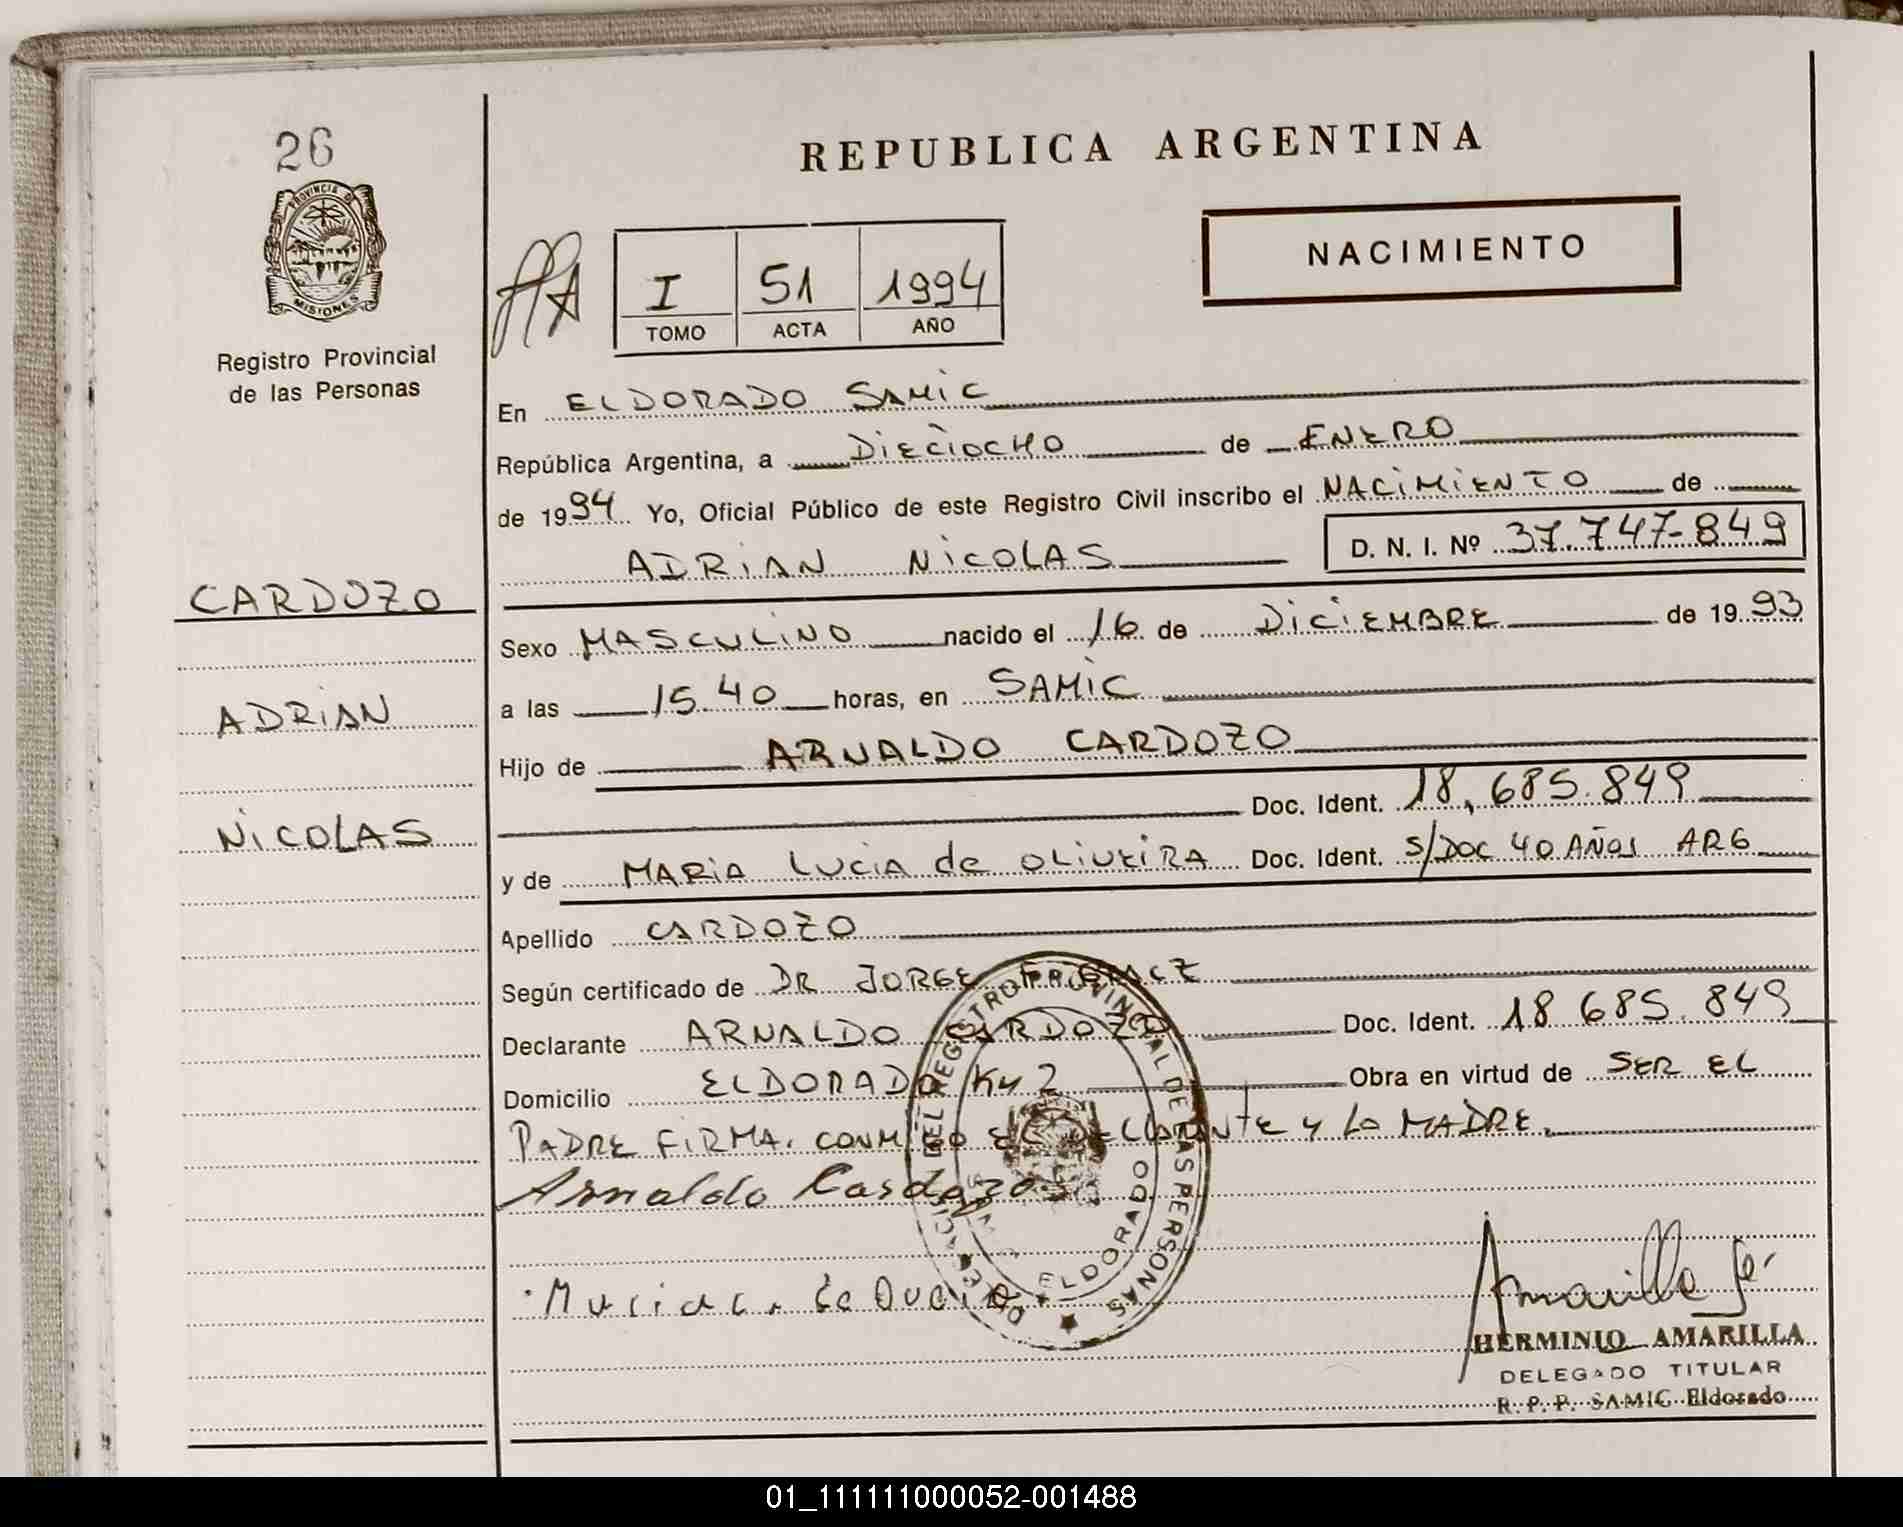 26
PROVINCIA DE
MISIONES
Registro Provincial
de las Personas
CARDOZO
ADRIAN
NICOLAS
REPUBLICA ARGENTINA
NACIMIENTO
I 51 1994
TOMO ACTA AÑO
En ELDORADO SAMIC
República Argentina, a DIECIOCHO de ENERO
de 1994 Yo, Oficial Público de este Registro Civil inscribo el NACIMIENTO de
ADRIAN NICOLAS D. N. I. Nº 37.747-849
Sexo MASCULINO nacido el 16 de DICIEMBRE de 1993
a las 15.40 horas, en SAMIC
Hijo de ARNALDO CARDOZO
Doc. Ident. 18,685.849
y de MARIA LUCIA de OLIVEIRA Doc. Ident. S/DOC 40 AÑOS ARG
Apellido CARDOZO
Según certificado de DR JORGE
Declarante ARNALDO CARDOZO Doc. Ident. 18 685.849
Domicilio ELDORADO Km 2 Obra en virtud de SER EL
PADRE FIRMA. CONMIGO EL DECLARANTE y LA MADRE.
Arnaldo Cardozo
DELEGACION DEL REGISTRO PROVINCIAL DE LAS PERSONAS
ELDORADO
Amarilla
HERMINIO AMARILLA
DELEGADO TITULAR
R. P. P. SAMIC Eldorado
01_111111000052-001488